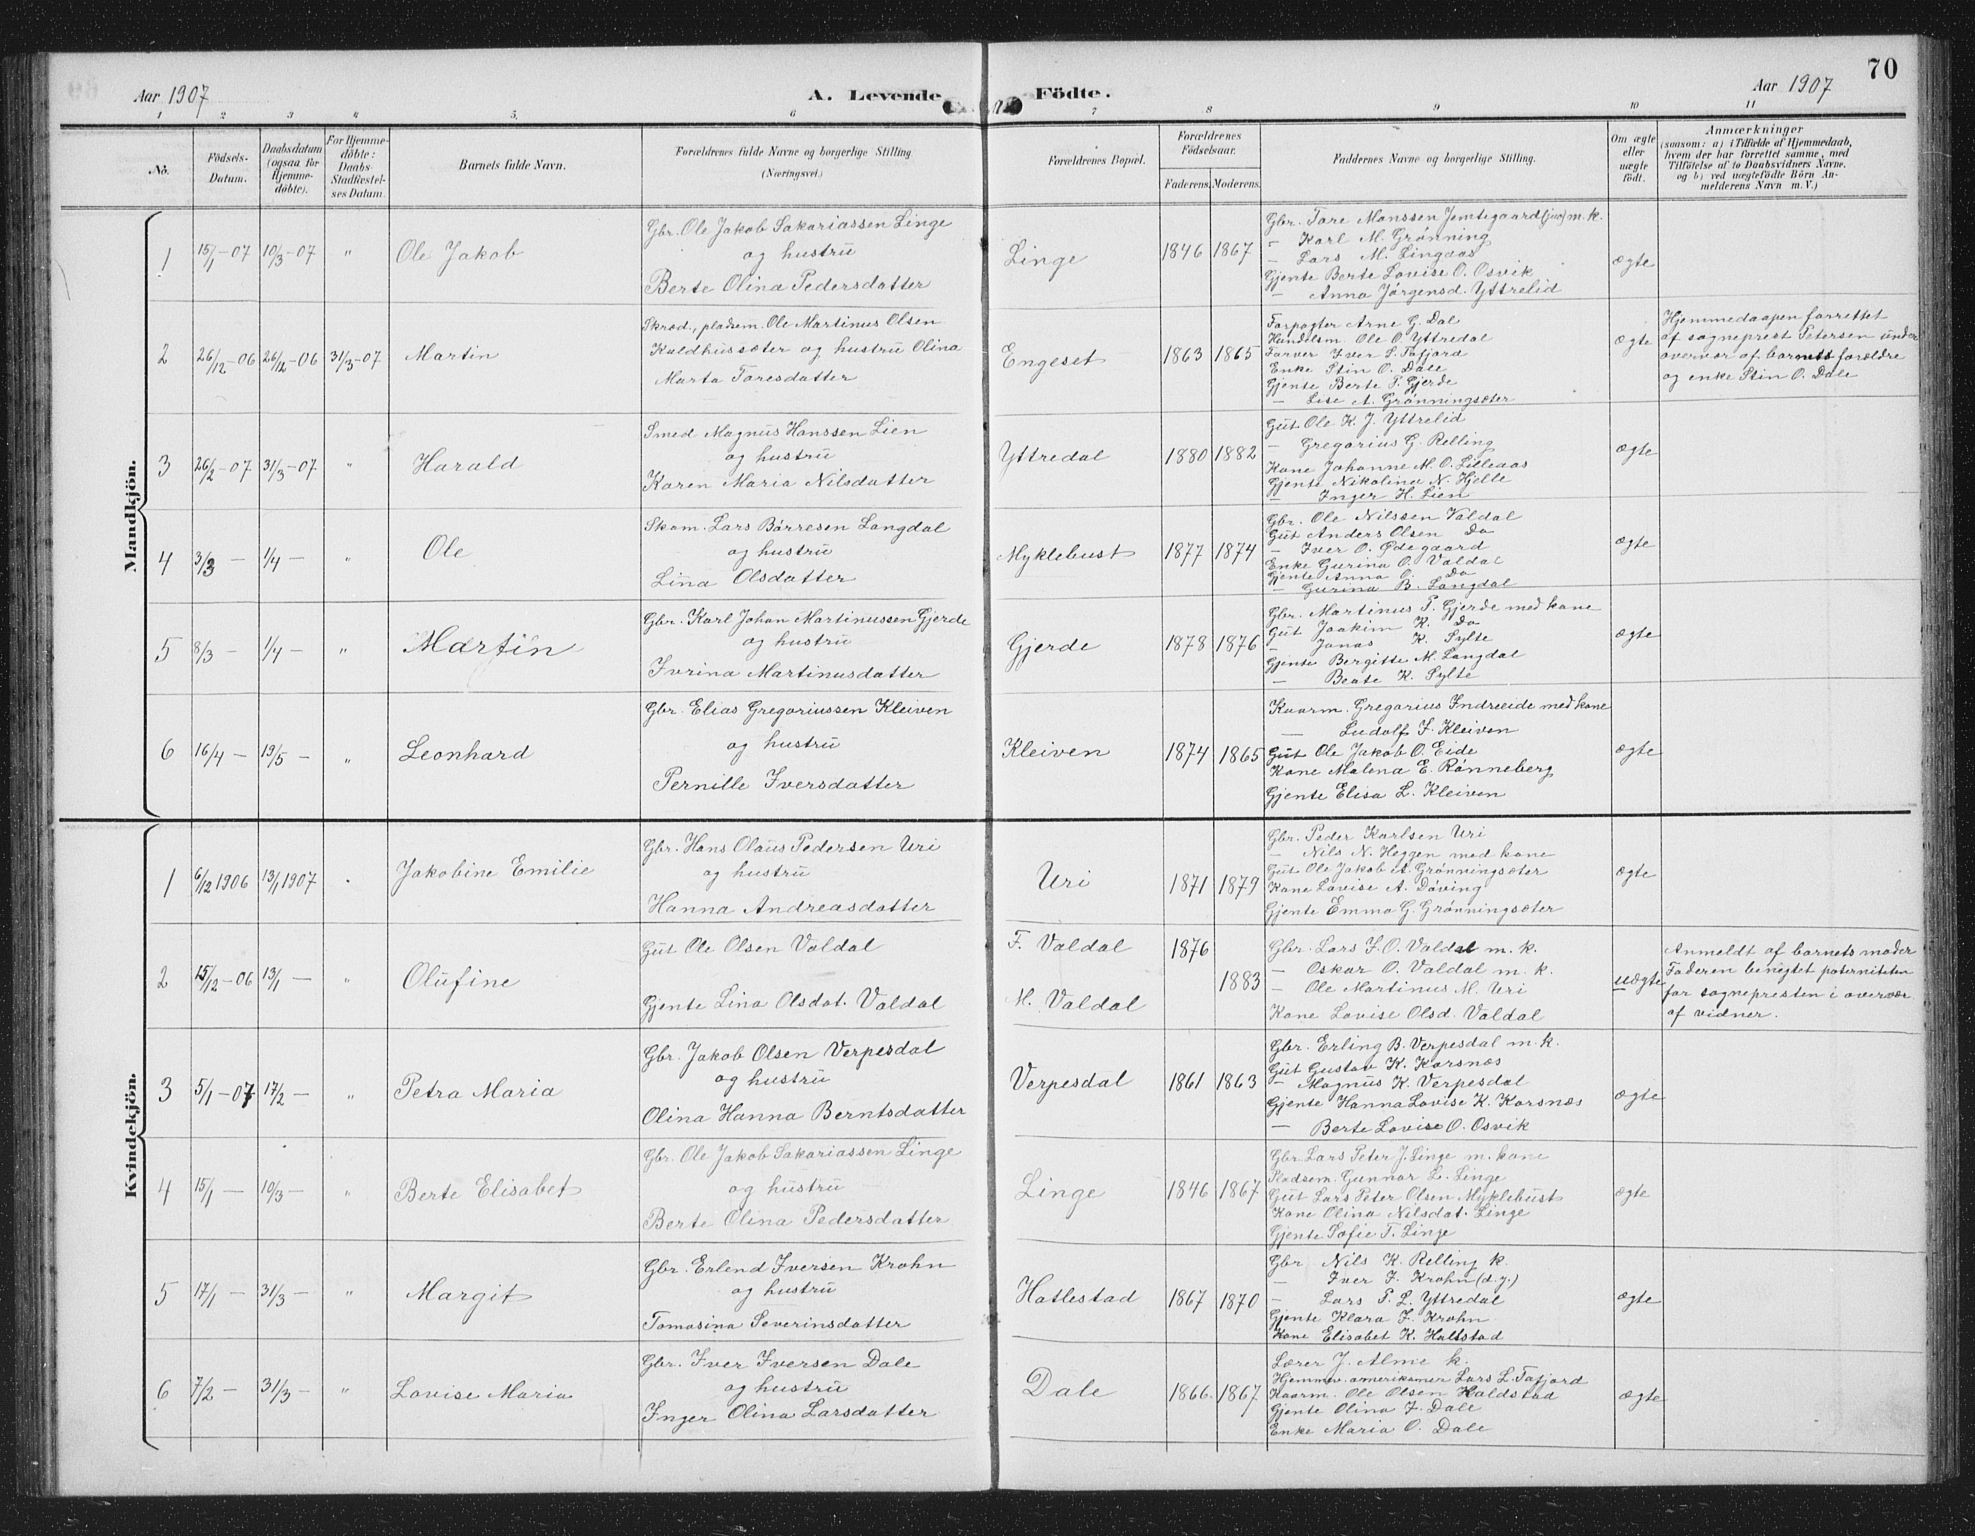 Aar 1907
A. Levende Födte.
Aar 1907
70
1 2 3 4 5. 6 7 8 9 10 11
No.
Födsels-
Datum.
Daabsdatum
(ogsaa for
Hjemme-
döbte).
For Hjemme-
döbte:
Daabs-
Stadfæstel-
ses Datum.
Barnets fulde Navn.
Forældrenes fulde Navne og borgerlige Stilling
(Næringsvei.)
Forældrenes Bopæl.
Forældrenes
Födselsaar.
Faderens. Moderens.
Faddernes Navne og borgerlige Stilling.
Om ægte
eller
uægte
födt.
Anmærkninger
(saasom: a) i Tilfælde af Hjemmedaab,
hvem der har forrettet samme, med
Tilföielse af to Daabsvidners Navne.
og b) ved uægtefödte Börn An-
melderens Navn m. V.)
Mandkjön.
1 15/1-07 10/3-07 " Ole Jakob
Gbr. Ole Jakob Sakariassen Linge
og hustru
Berte Olina Pedersdatter
Linge 1846 1867
Gbr. Tore Monssen Jemtegaard (jus) m. k.
- Karl M. Grønning
- Lars M. Lingaas
Gjente Berte Lovise O. Osvik
- Anna Jørgensd. Yttrelid
ægte
2 26/12-06 26/12-06 31/3-07 Martin
Skrød., pladsem. Ole Martinus Olsen
Kaldhussæter og hustru Olina
Marta Toresdatter
Engeset 1863 1865
Forpagter Arne G. Dal
Handelsm. Ole O. Yttredal
Farver Iver L. Tafjord
Enke Stin O. Dale
Gjente Berte T. Gjerde
- Lise A. Grønningsæter
ægte
Hjemmedaapen forrettet
af sogneprest Petersen under
overvær af barnets forældre
og enke Stin O. Dale
3 26/2-07 31/3-07 " Harald
Smed Magnus Hanssen Lien
og hustru
Karen Maria Nilsdatter
Yttredal 1880 1882
Gut Ole K. J. Yttrelid
- Gregorius G. Relling
Kone Johanne M. O. Lilleaas
Gjente Nikolina N. Hjelle
- Inger H. Lien
ægte
4 3/3 - 1/4 - " Ole
Skom. Lars Børresen Langdal
og hustru
Lina Olsdatter
Myklebust 1877 1874
Gbr. Ole Nilssen Valdal
Gut Anders Olsen Do
- Iver O. Ødegaard
Enke Gurina O. Valdal
Gjente Anna O. Do
- Gurina B. Langdal
ægte
5 8/3 - 1/4 - " Martin
Gbr. Karl Johan Martinussen Gjerde
og hustru
Ivrina Martinusdatter
Gjerde 1878 1876
Gbr. Martinus P. Gjerde med kone
Gut Joakim K. Do
- Jonas K. Sylte
Gjente Bergitte M. Langdal
- Beate K. Sylte
ægte
6 16/4 - 19/5 - " Leonhard
Gbr. Elias Gregoriussen Kleiven
og hustru
Pernille Iversdatter
Kleiven 1874 1865
Kaarm. Gregorius Indreeide med kone
- Ludolf I. Kleiven
Gut Ole Jakob O. Eide
Kone Malena E. Rønneberg
Gjente Elisa L. Kleiven
ægte
Kvindekjön.
1 6/12 1906 13/1 1907 " Jakobine Emilie
Gbr. Hans Olaus Pedersen Uri
og hustru
Hanna Andreasdatter
Uri 1871 1879
Gbr. Peder Karlsen Uri
- Nils N. Heggen med kone
Gut Ole Jakob A. Grønningsæter
Kone Lovise A. Døving
Gjente Emma G. Grønningsæter
ægte
2 15/12-06 13/1 - " Olufine
Gut Ole Olsen Valdal
Gjente Lina Olsdat. Valdal
F. Valdal 1876
M. Valdal 1883
Gbr. Lars J. O. Valdal m. k.
- Oskar O. Valdal m. k.
- Ole Martinus M. Uri
Kone Lovise Olsd. Valdal
uægte
Anmeldt af barnets moder
Faderen benegtet paterniteten
for sognepresten i overvær
af vidner.
3 5/1-07 17/2 - " Petra Maria
Gbr. Jakob Olsen Verpesdal
og hustru
Olina Hanna Berntsdatter
Verpesdal 1861 1863
Gbr. Erling B. Verpesdal m. k.
Gut Gustav K. Korsnæs
- Magnus K. Verpesdal
Gjente Hanna Lovise K. Korsnæs
- Berte Lovise O. Osvik
ægte
4 15/1 - 10/3 - " Berte Elisabet
Gbr. Ole Jakob Sakariassen Linge
og hustru
Berte Olina Pedersdatter
Linge 1846 1867
Gbr. Lars Peter J. Linge m. kone
Pladsem. Gunnar L. Linge
Gut Lars Peter Olsen Myklebust
Kone Olina Nilsdat. Linge
Gjente Sofie T. Linge
ægte
5 17/1 - 31/3 - " Margit
Gbr. Erlend Iversen Krohn
og hustru
Tomasina Severinsdatter
Hatlestad 1867 1870
Gbr Nils K. Relling k.
- Iver I. Krohn (d.y.)
- Lars P. L. Yttredal
Gjente Klara I. Krohn
Kone Elisabet K. Haltstad
ægte
6 7/2 - 31/3 - " Lovise Maria
Gbr. Iver Iversen Dale
og hustru
Inger Olina Larsdatter
Dale 1866. 1867
Lærer J. Alme k.
Hjemmv. amerikaner Lars L. Tafjord
Kaarm. Ole Olsen Haldstad
Gjente Olina I. Dale
Enke Maria O. Dale
ægte